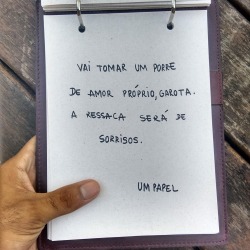 VAI TOMAR UM PORRE
DE AMOR PRÓPRIO, GAROTA.
A RESSACA SERÁ DE
SORRISOS.
UM PAPEL